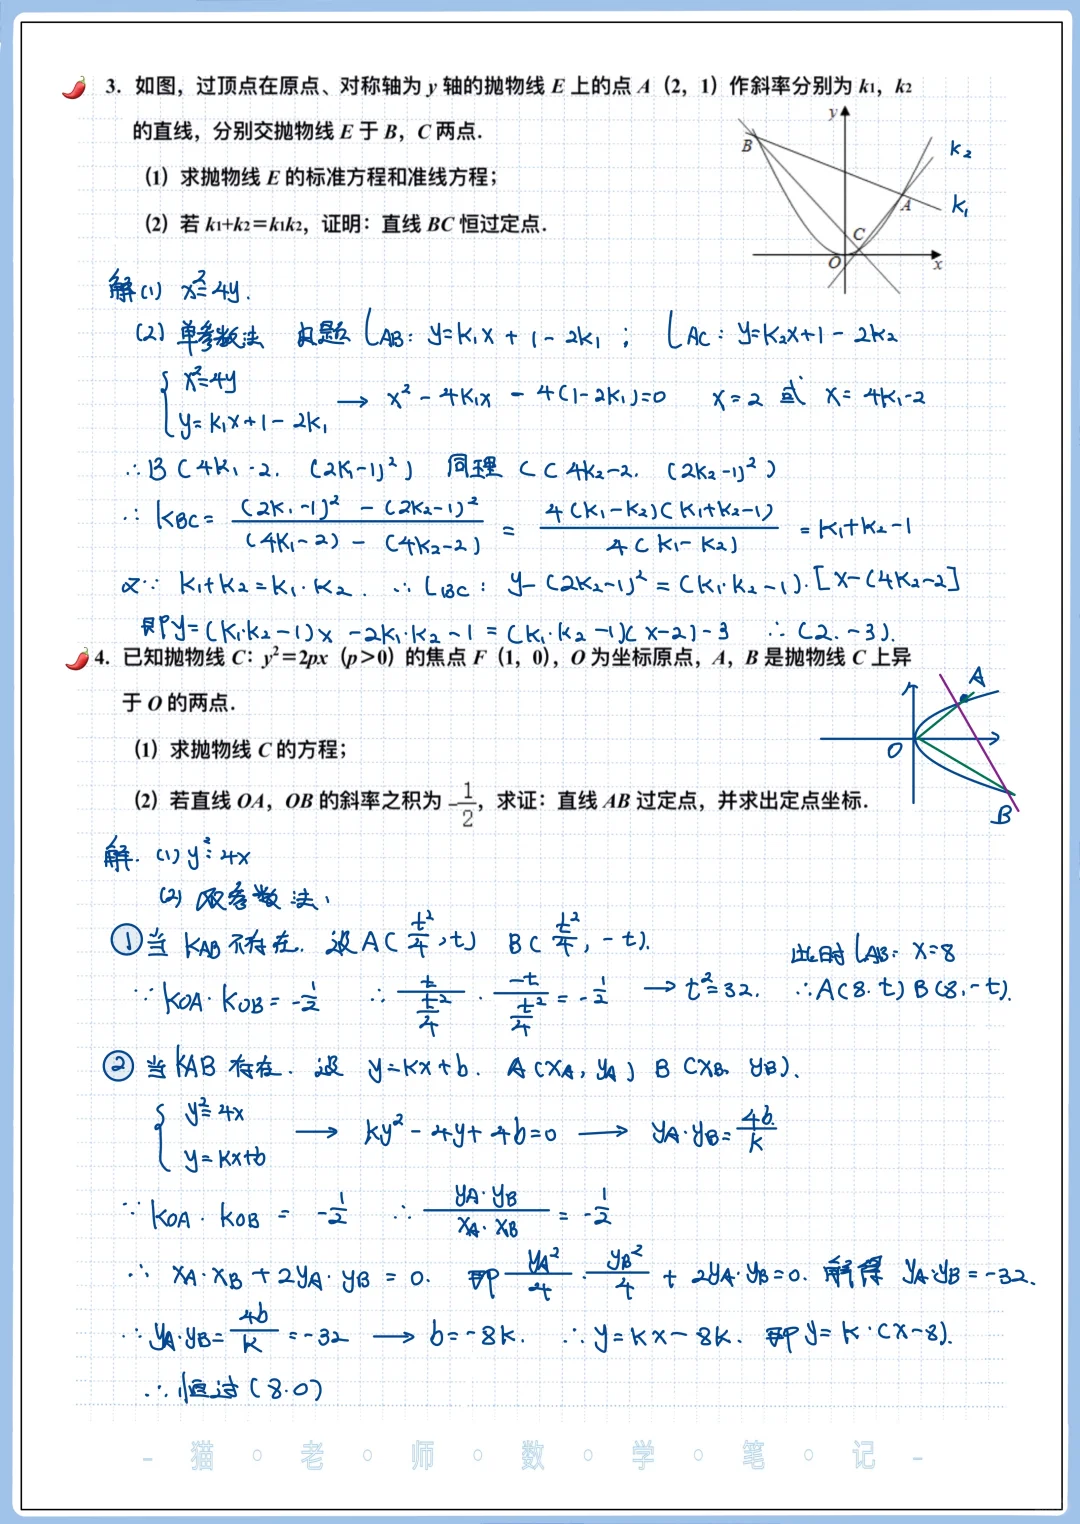 3. 如图，过顶点在原点、对称轴为 y 轴的抛物线 E 上的点 A（2，1）作斜率分别为 k1，k2
的直线，分别交抛物线 E 于 B，C 两点．
（1）求抛物线 E 的标准方程和准线方程；
（2）若 k1+k2＝k1k2，证明：直线 BC 恒过定点．
y
B
k₂
A
k₁
C
O
x
解(1) x²=4y.
(2) 单参数法 由题 l_AB: y=k₁x+1-2k₁ ; l_AC: y=k₂x+1-2k₂
{ x²=4y
y=k₁x+1-2k₁ → x²-4k₁x-4(1-2k₁)=0 x=2 或 x=4k₁-2
∴B(4k₁-2. (2k₁-1)²) 同理 C(4k₂-2. (2k₂-1)²)
∴ k_BC= ((2k₁-1)²-(2k₂-1)²)/((4k₁-2)-(4k₂-2)) = 4(k₁-k₂)(k₁+k₂-1)/4(k₁-k₂) =k₁+k₂-1
又∵ k₁+k₂=k₁·k₂. ∴l_BC: y-(2k₂-1)²=(k₁·k₂-1)·[x-(4k₂-2]
即y=(k₁·k₂-1)x-2k₁·k₂-1=(k₁·k₂-1)(x-2)-3 ∴(2.-3).
4. 已知抛物线 C：y²＝2px（p＞0）的焦点 F（1，0），O 为坐标原点，A，B 是抛物线 C 上异
于 O 的两点．
（1）求抛物线 C 的方程；
（2）若直线 OA，OB 的斜率之积为 -1/2，求证：直线 AB 过定点，并求出定点坐标．
A
O
B
解. (1) y²=4x
(2) 双参数法、
① 当 k_AB 不存在. 设A(t²/4,t) B(t²/4,-t). 此时 l_AB: x=8
∵ k_OA·k_OB=-1/2 ∴ t/(t²/4)·-t/(t²/4)=-1/2 → t²=32. ∴A(8.t) B(8.-t).
② 当 k_AB 存在. 设 y=kx+b. A(x_A, y_A) B(x_B, y_B).
{ y²=4x
y=kx+b → ky²-4y+4b=0 → y_A·y_B=4b/k
∵ k_OA·k_OB=-1/2 ∴ y_A·y_B/x_A·x_B=-1/2
∴ x_A·x_B+2y_A·y_B=0. 即 y_A²/4·y_B²/4+2y_A·y_B=0. 解得 y_A·y_B=-32.
∴ y_A·y_B=4b/k=-32 → b=-8k. ∴y=kx-8k. 即y=k·(x-8).
∴恒过(8.0)
- 猫 · 老 · 师 · 数 · 学 · 笔 · 记 -